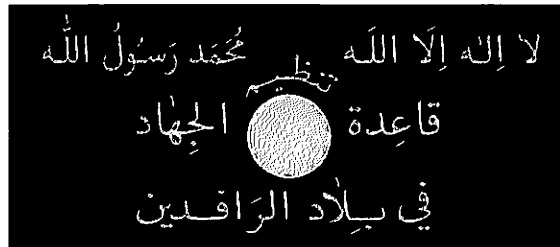 لا إِلٰه إِلَا اللَه مُحَمَد رَسُولُ اللّٰه
تنظيم
قاعِدة الجِهٰاد
في بِلٰاد الرَافدين